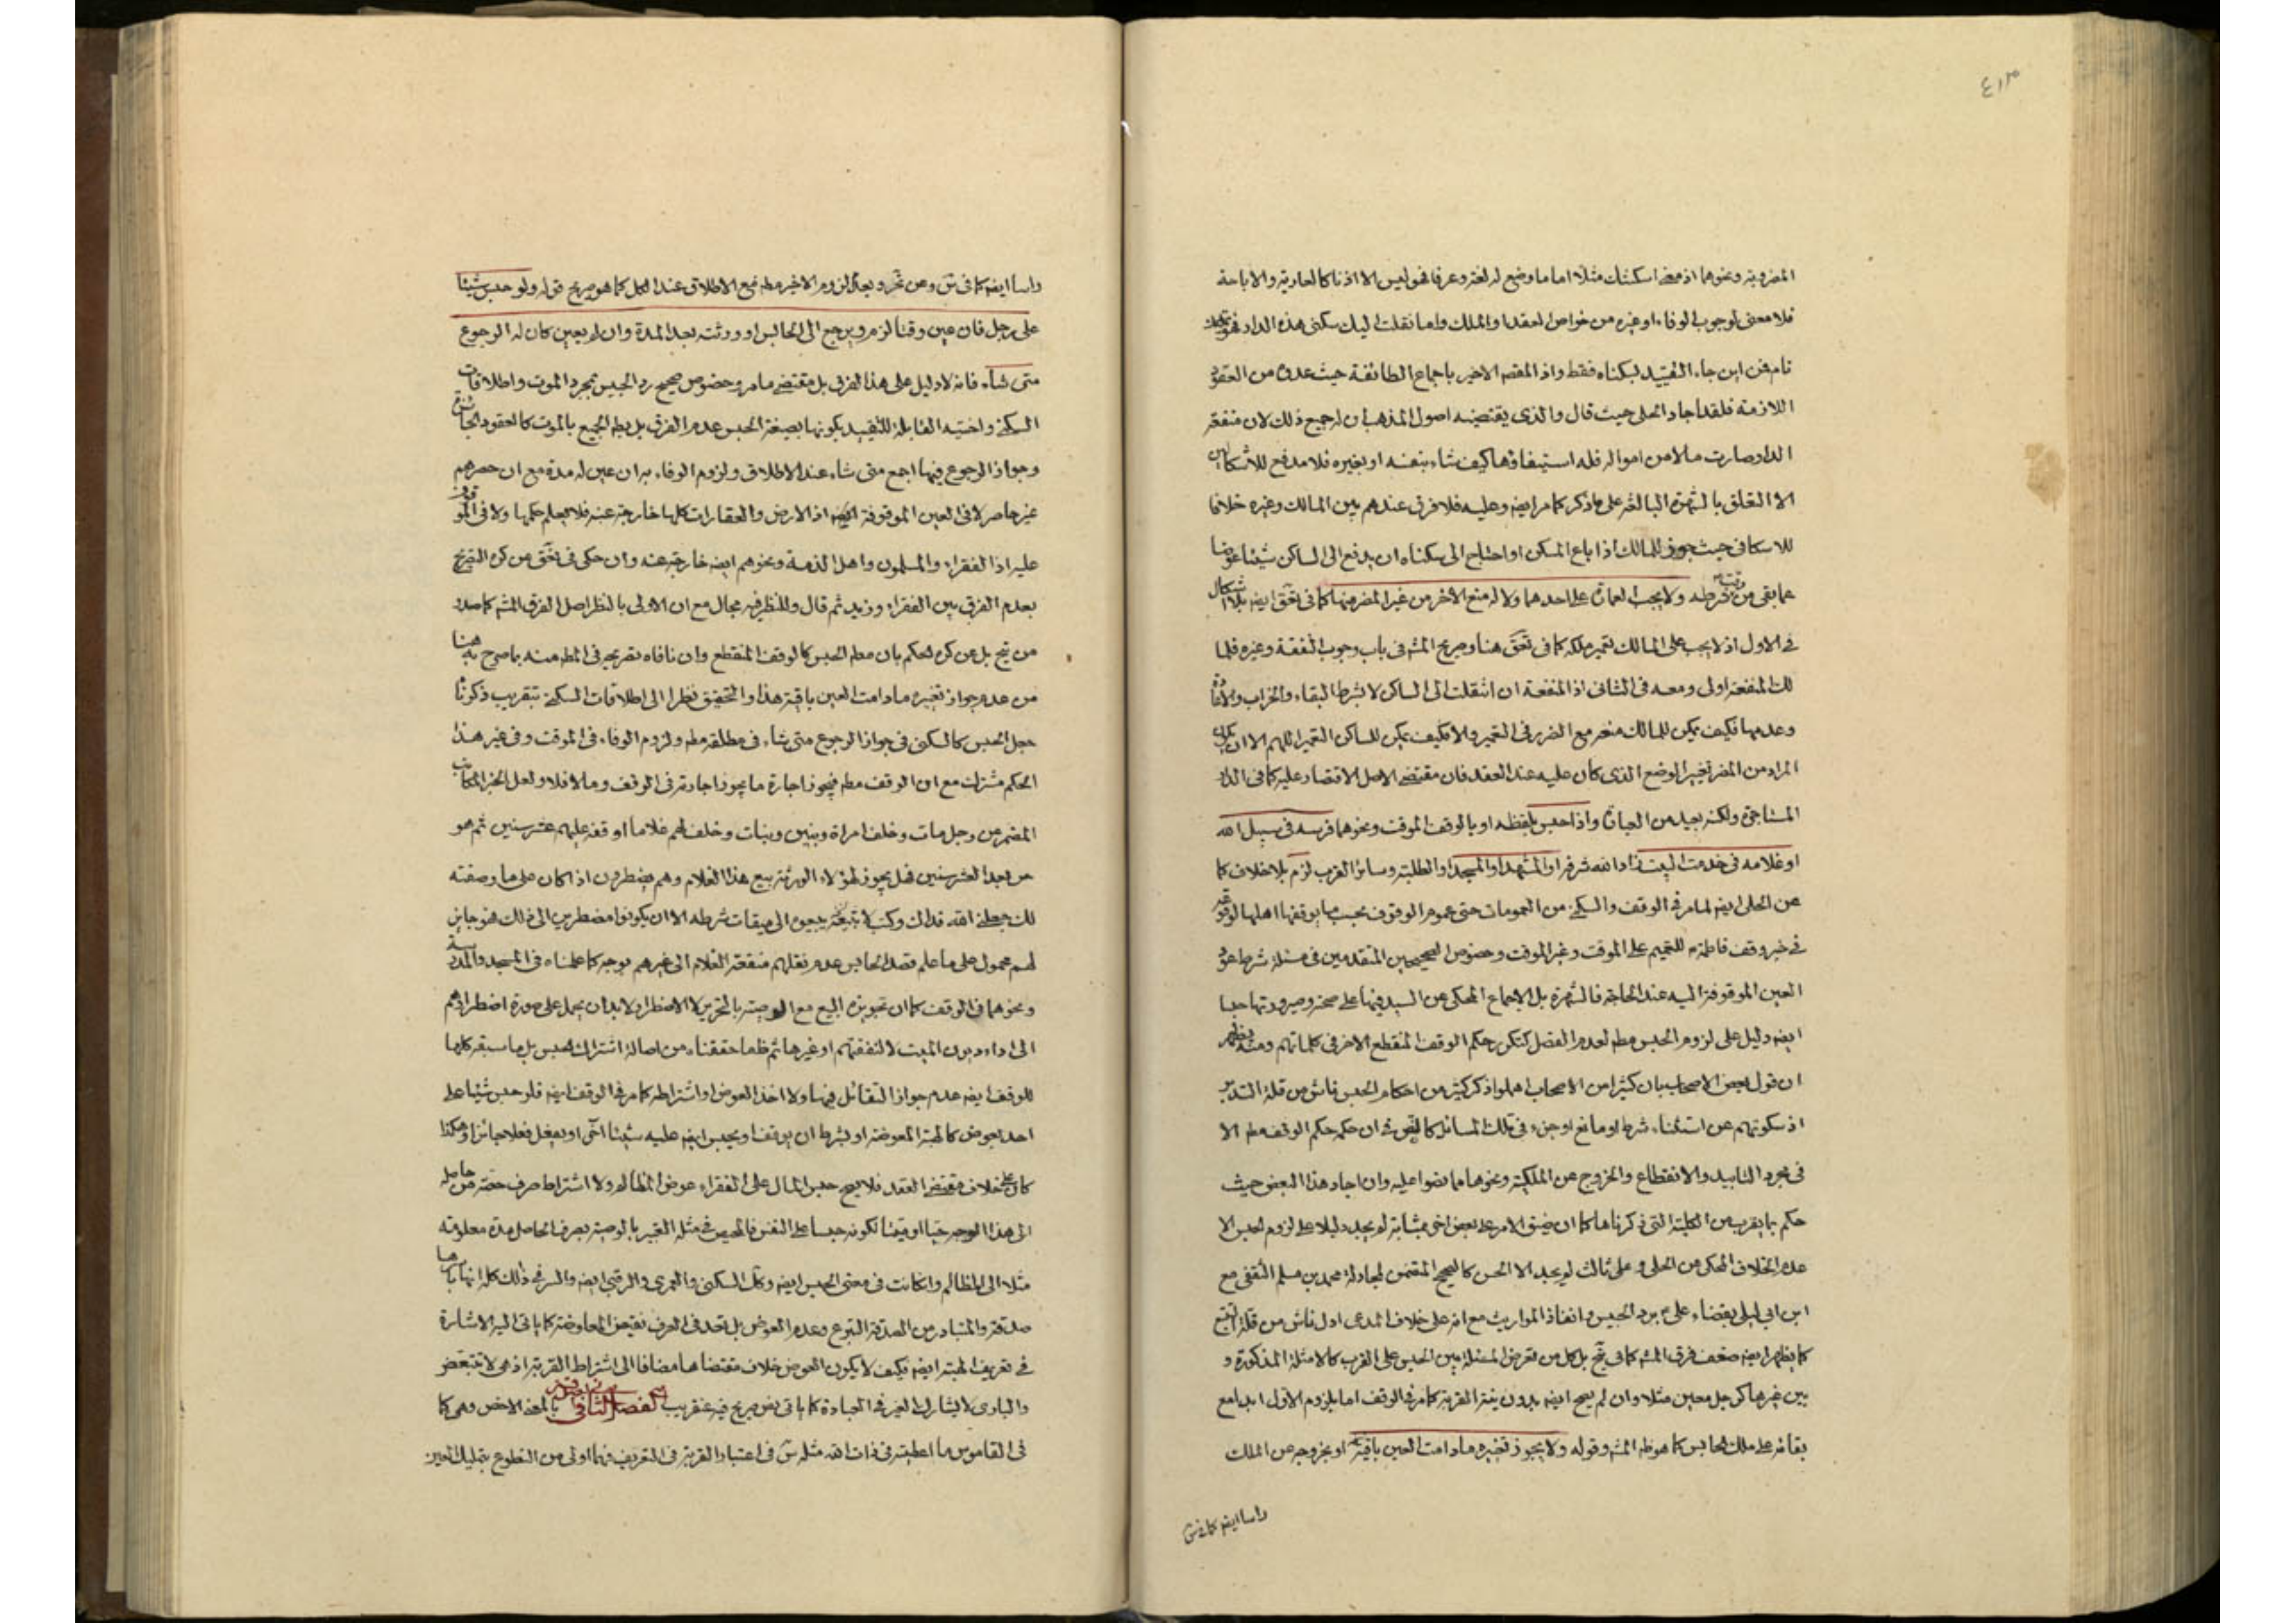 ٤١٣
المضروبة ونحوهما اذ معنى اسكنتك مثلا اما ما وضع له لغة وعرفا فهو ليس الا اذنا كالعارية والاباحة
فلا معنى لوجوب الوفاء او غيره من خواص العقد او الملك واما نقلت اليك سكنى هذه الدار فهو تمليك
تام فمن اين جاء التقييد بسكناه فقط واذ المقصد الاخير باجماع الطائفة حيث عدوه من العقود
اللازمة فلقد اجاد الحلى حيث قال والذى يقتضيه اصول المذهب ان له جميع ذلك لان منفعة
الدار صارت مالا من امواله فله استيفاؤها كيف شاء بنفسه او بغيره فلا مدفع للاشكالين
الا التعلق بالشهرة البالغة على ما ذكر كما مر ايضه وعليه فلا فرق عندهم بين المالك وغيره خلافا
للاسكافى حيث جوز للمالك اذا باع المسكن او احتاج الى سكناه ان يدفع الى الساكن شيئا عوضا
عما بقى من وقت شرطه ولا يجب العمارة على احدهما ولا له منع الاخر من غير المضر منها كما فى لعق ايضه بلا اشكال
فى الاول اذ لا يجب على المالك تعمير ملكه كما فى لعق هنا وصريح المشه فى باب وجوب النفقة وغيره فلما
لك المنفعة اولى ومعه فى الثانى اذ المنفعة ان انتقلت الى الساكن لا بشرط البقاء والخراب
وعدمها فكيف يمكن للمالك منعه مع الضرر فى التعمير والا فكيف يمكن للساكن التعمير اللهم الا ان يكون
المراد من المضر تغيير الوضع الذى كان عليه عند العقد فان مقتضى الاصل الاقتصار عليه كما فى الدار
المستاجرة ولكنه بعيد من العبارة واذا حبس بلفظه او بالوقف الموقت ونحوهما فرسه فى سبيل الله
او غلامه فى خدمت البيت زاد الله شرفه او المشهد او المسجد او الطلبة وسائر القرب لزم بلا خلاف كما
عن الحلى ايضه لما مر فى الوقف والسكنى من العمومات حتى عموم الوقوف بحسب ما يوقفها اهلها الوقوعه
فى خبر وقف فاطمة للتعميم على الموقت وغير الموقت وخصوص الصحيحين المتقدمين فى مسئلة شرط عود
العين الموقوفة اليه عند الحاجة فالشهرة بل الاجماع المحكى عن السيد فيها على صحته وصيرورتها حبسا
ايضه دليل على لزوم الحبس مطه لعدم الفصل كتكرر حكم الوقف المنقطع الاخر فى كلماتهم ومنه يظهر
ان قول بعض الاصحاب بان كثيرا من الاصحاب اهملوا ذكر كثير من احكام الحبس فاش من قلة التدبر
اذ سكوتهم عن استثناء شرط او مانع او جزء فى تلك المسائل كالنص فى ان حكمه حكم الوقف مطه الا
فى مجرد التابيد والانقطاع والخروج عن الملكية ونحوها مما نصوا عليه وان اجاد هذا البعض حيث
حكم بما يقرب من الكلية التى ذكرناها كما ان ضيق الامر على بعض اخر بمثابة لم يجد دليلا على لزوم الحبس الا
عدم الخلاف المحكى عن الحلى وعلى ثالث لم يجد الا الحسن كالصحيح المتضمن لمجادلة محمد بن مسلم الثقفى مع
ابن ابى ليلى بقضاء على برد الحبيس وانفاذ المواريث مع انه على خلاف المدعى ادل فاش من قلة التتبع
كما يظهر ايضه ضعف فرق المشه كما فى تح بل كل من تعرض للمسئلة بين الحبس على القرب كالامثلة المذكورة و
بين غيرها كرجل معين مثلا وان لم يصح ايضه بدون نية القربة كما مر فى الوقف اما بلزوم الاول ابدا مع
بقائه على ملك الحابس كما هو ظه المشه وقوله ولا يجوز تغييره ما دامت العين باقية او بخروجه عن الملك
راسا ايضه كما فى ش
راسا ايضه كما فى ش وعن تحر وبعده لزوم الاخير مطه فمع الاطلاق عند الكل كما هو صريح قوله ولو حبس شيئا
على رجل فان عين وقتا لزم ويرجع الى الحابس او ورثته بعد المدة وان لم يعين كان له الرجوع
متى شاء فانه لا دليل على هذا الفرق بل مقتضى ما مر وخصوص صحيح رد الحبيس بمجرد الموت واطلاقات
السكنى واختيه القابلة للتقييد بكونها بصيغة الحبس عدم الفرق بل بطه الجميع بالموت كالعقود الجائزة
وجواز الرجوع فيها اجمع متى شاء عند الاطلاق ولزوم الوفاء به ان عين له مدة مع ان حصرهم
غير حاصر لا فى العين الموقوفة ايضه اذ الارض والعقارات كلها خارجة عنه فلا يعلم حكمها ولا فى الموقوف
عليه اذ الفقراء والمسلمون واهل الذمة ونحوهم ايضه خارجة عنه وان حكى فى لعق عن كره التصريح
بعدم الفرق بين الفقراء وزيد ثم قال وللنظر فيه مجال مع ان الاولى بالنظر اصل الفرق المشه كما صدر
من تح بل عن كره الحكم بان مطه الحبس كالوقف المنقطع وان نافاه تصريحه فى المطه منه بما صرح به هنا
من عدم جواز تغييره ما دامت العين باقية هذا والتحقيق نظرا الى اطلاقات السكنى بتقريب ذكرناه
جعل الحبس كالسكنى فى جواز الرجوع متى شاء فى مطلقه مطه ولزوم الوفاء فى الموقت وفى غير هذا
الحكم مشترك مع ان الوقف مطه فيجوز اجارة ما يجوز اجارته فى الوقف وما لا فلا ولعل الخبر المكاتب
المضمر عن رجل مات وخلف امراة وبنين وبنات وخلف لهم غلاما اوقفه عليهم عشر سنين ثم هو
حر بعد العشر سنين فهل يجوز لهؤلاء الورثة بيع هذا الغلام وهم يضطرون اذا كان على ما وصفته
لك جعلنى الله فداك وكتب لا يبيعه يبيعون الى ميقات شرطه الا ان يكونوا مضطرين الى ذلك فهو جايز
لهم محمول على ما علم قصد الحابس عدم نقلهم منفعة الغلام الى غيرهم بوجه كما علمناه فى المسجد والمدرسة
ونحوهما فى الوقف كما ان تجويزه البيع مع الوصية بالتحرير لا الاضطرار ولا بد ان يحمل على صورة اضطرارهم
الى اداء ديون الميت لا لنفقتهم او غيرها ثم ظه ما حققناه من اصالة اشتراك الحبس بل ما سبقه كلها
للوقف ايضه عدم جواز التقائل فيها ولا اخذ العوض او اشتراطه كما مر فى الوقف ايضه فلو حبس شيئا على
احد بعوض كالهبة المعوضة او بشرط ان يوقف او يحبس ايضه عليه شيئا اخر او يفعل فعلا جائزا وهكذا
كان على خلاف مقتضى العقد فلا يصح حبس المال على الفقراء عوض المظالم ولا اشتراط صرف حصة من حاصله
الى هذا الوجه حيا او ميتا لكونه حبسا على النفس فالمحيص فى مثله التعبير بالوصية بصرف الحاصل مدة معلومة
مثلا الى المظالم وان كانت فى معنى الحبس ايضه وكك السكنى والعمرى والرقبى ايضه والسر فى ذلك كله انها باسرها
صدقة والمتبادر من الصدقة التبرع وعدم العوض بل تعد فى العرف نقيض المعاوضة كما ياتى اليه الاشارة
فى تعريف الهبة ايضه فكيف لا يكون العوض خلاف مقتضاها مضافا الى اشتراط القربة اذ هى لا تتبعض
والبارى لا يشارك الغير فى العبادة كما ياتى نص صريح فيه عنقريب الفصل الثانى فى الصدقة بالمعنى الاخص وهى كما
فى القاموس ما اعطيته فى ذات الله مثله ش فى اعتبار القربة فى التعريف فهما اولى من التطوع بتمليك العين